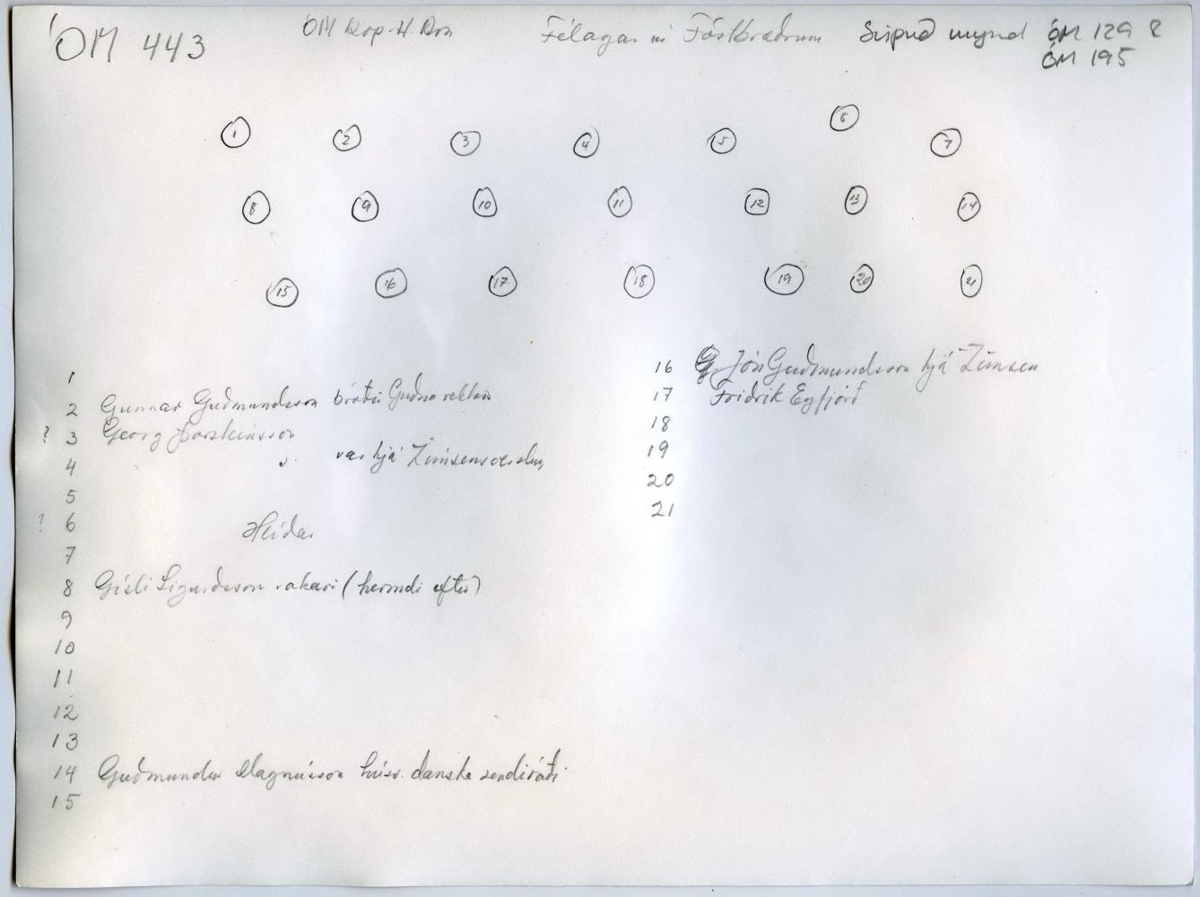 ÓM 443
ÓM Kop-H. Félagar úr Fóstbræðrum Svipuð mynd ÓM 129 &
ÓM 195
1 2 3 4 5 6 7
8 9 10 11 12 13 14
15 16 17 18 19 20 21
1
2 Gunnar Guðmundsson bróðir Guðna rektor
? 3 Georg Þorsteinsson
4 var hjá Zimsen
5
? 6 Heiðar
7
8 Gísli Sigurðsson rakari (hermdi eftir)
9
10
11
12
13
14 Guðmundur Magnússon húsv. danska sendiráði
15
16 Jón Guðmundsson hjá Zimsen
17 Friðrik Eyfjörð
18
19
20
21